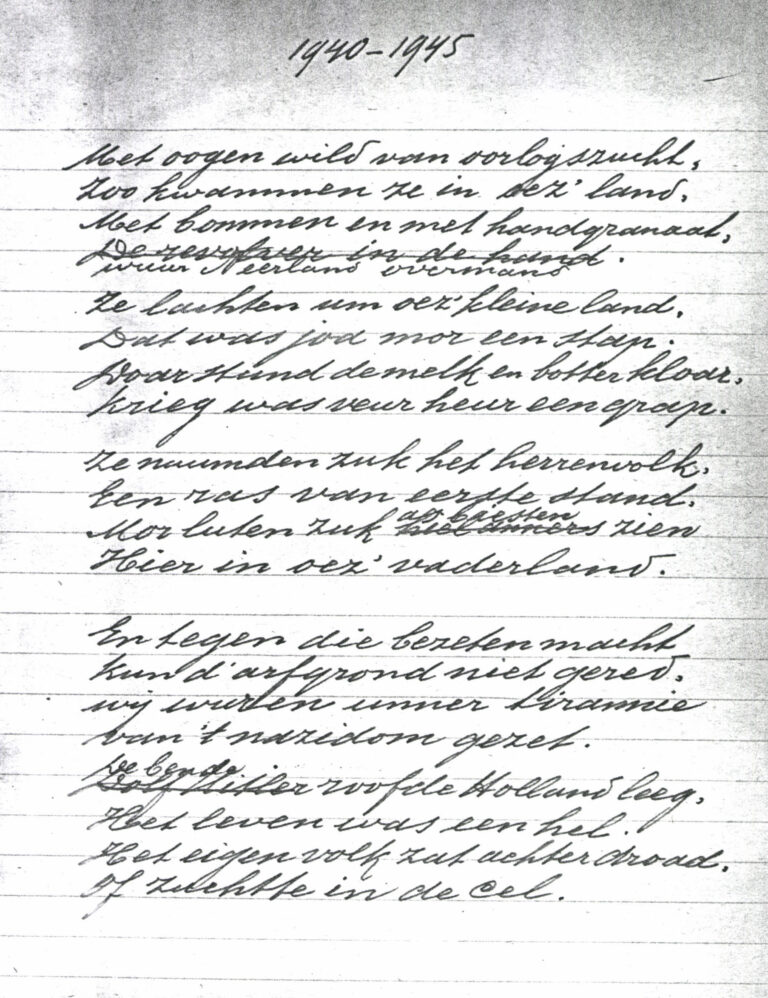 1940-1945
Met oogen wild van oorlogszucht,
Zoo kwammen ze in oez' land,
Met bommen en met handgranaat,
De revolver in de hand.
wuur Neerland overmand
Ze lachten um oez' kleine land,
Dat was jod mor een stap.
Doar stund de melk en botter kloar,
Krieg was veur heur een grap.
Ze nuumden zuk het herrenvolk,
Een ras van eerste stand,
as beesten
Mor luten zuk hiel anners zien
Hier in oez' vaderland.
En tegen die bezeten macht
Kun d'arfgrond niet gered,
wij wuren unner tirannie
van 't nazidom gezet.
De bende
Dolf Hitler roofde Holland leeg,
Het leven was een hel.
Het eigen volk zat achter droad,
Of zuchtte in de cel.